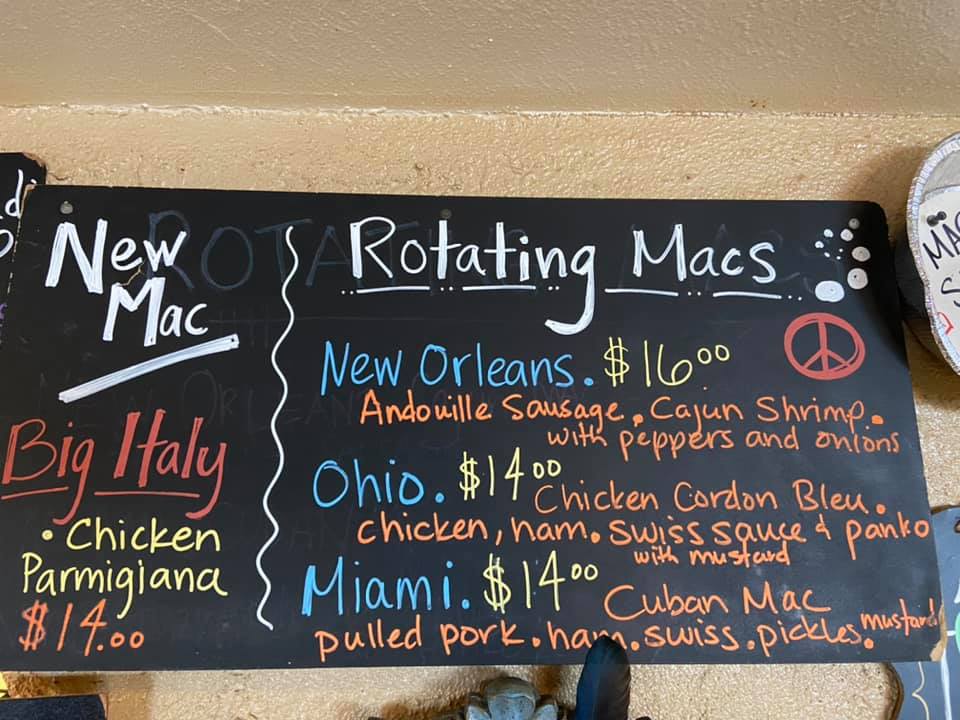 New
Mac
Big Italy
• Chicken
Parmigiana
$14.00
Rotating Macs
New Orleans. $16.00
Andouille Sausage. Cajun Shrimp.
with peppers and onions
Ohio. $14.00
Chicken Cordon Bleu.
chicken, ham. swiss sauce & panko
with mustard
Miami. $14.00
Cuban Mac
pulled pork. ham. swiss. pickles. mustard